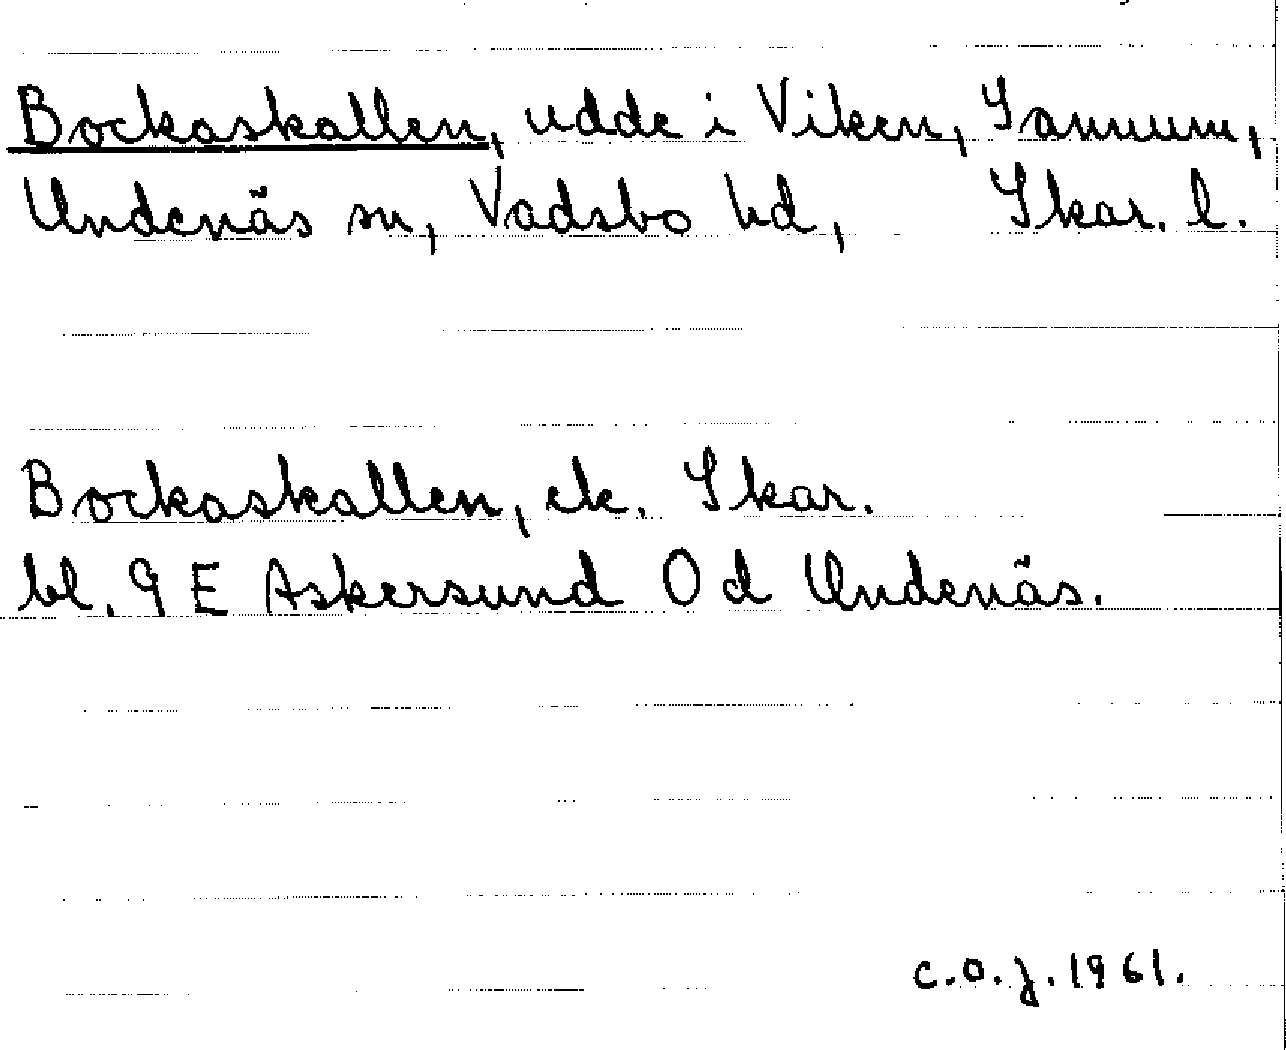 Bockaskallen, udde i Viken, Sannum,
Undenäs sn, Vadsbo hd, Skar. l.
Bockaskallen, ek. Skar.
bl. 9 E Askersund 0 d Undenäs.
C.O.J. 1961.